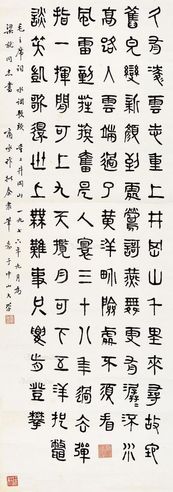 久有凌雲志重上井岡山千里來尋故地
舊皃變新顏到處鶯歌燕舞更有潺=流水
高路入雲端過了黃洋界險處不須看
風雷動旌旗奮是人寰三十八年過去彈
指一揮間可上九天攬月可下五洋捉鼈
談笑凱歌還世上無難事只要肯登攀
毛主席詞 水調歌頭 重上井岡山 一九七六年九月爲
同志書 商承祚 于中山大學